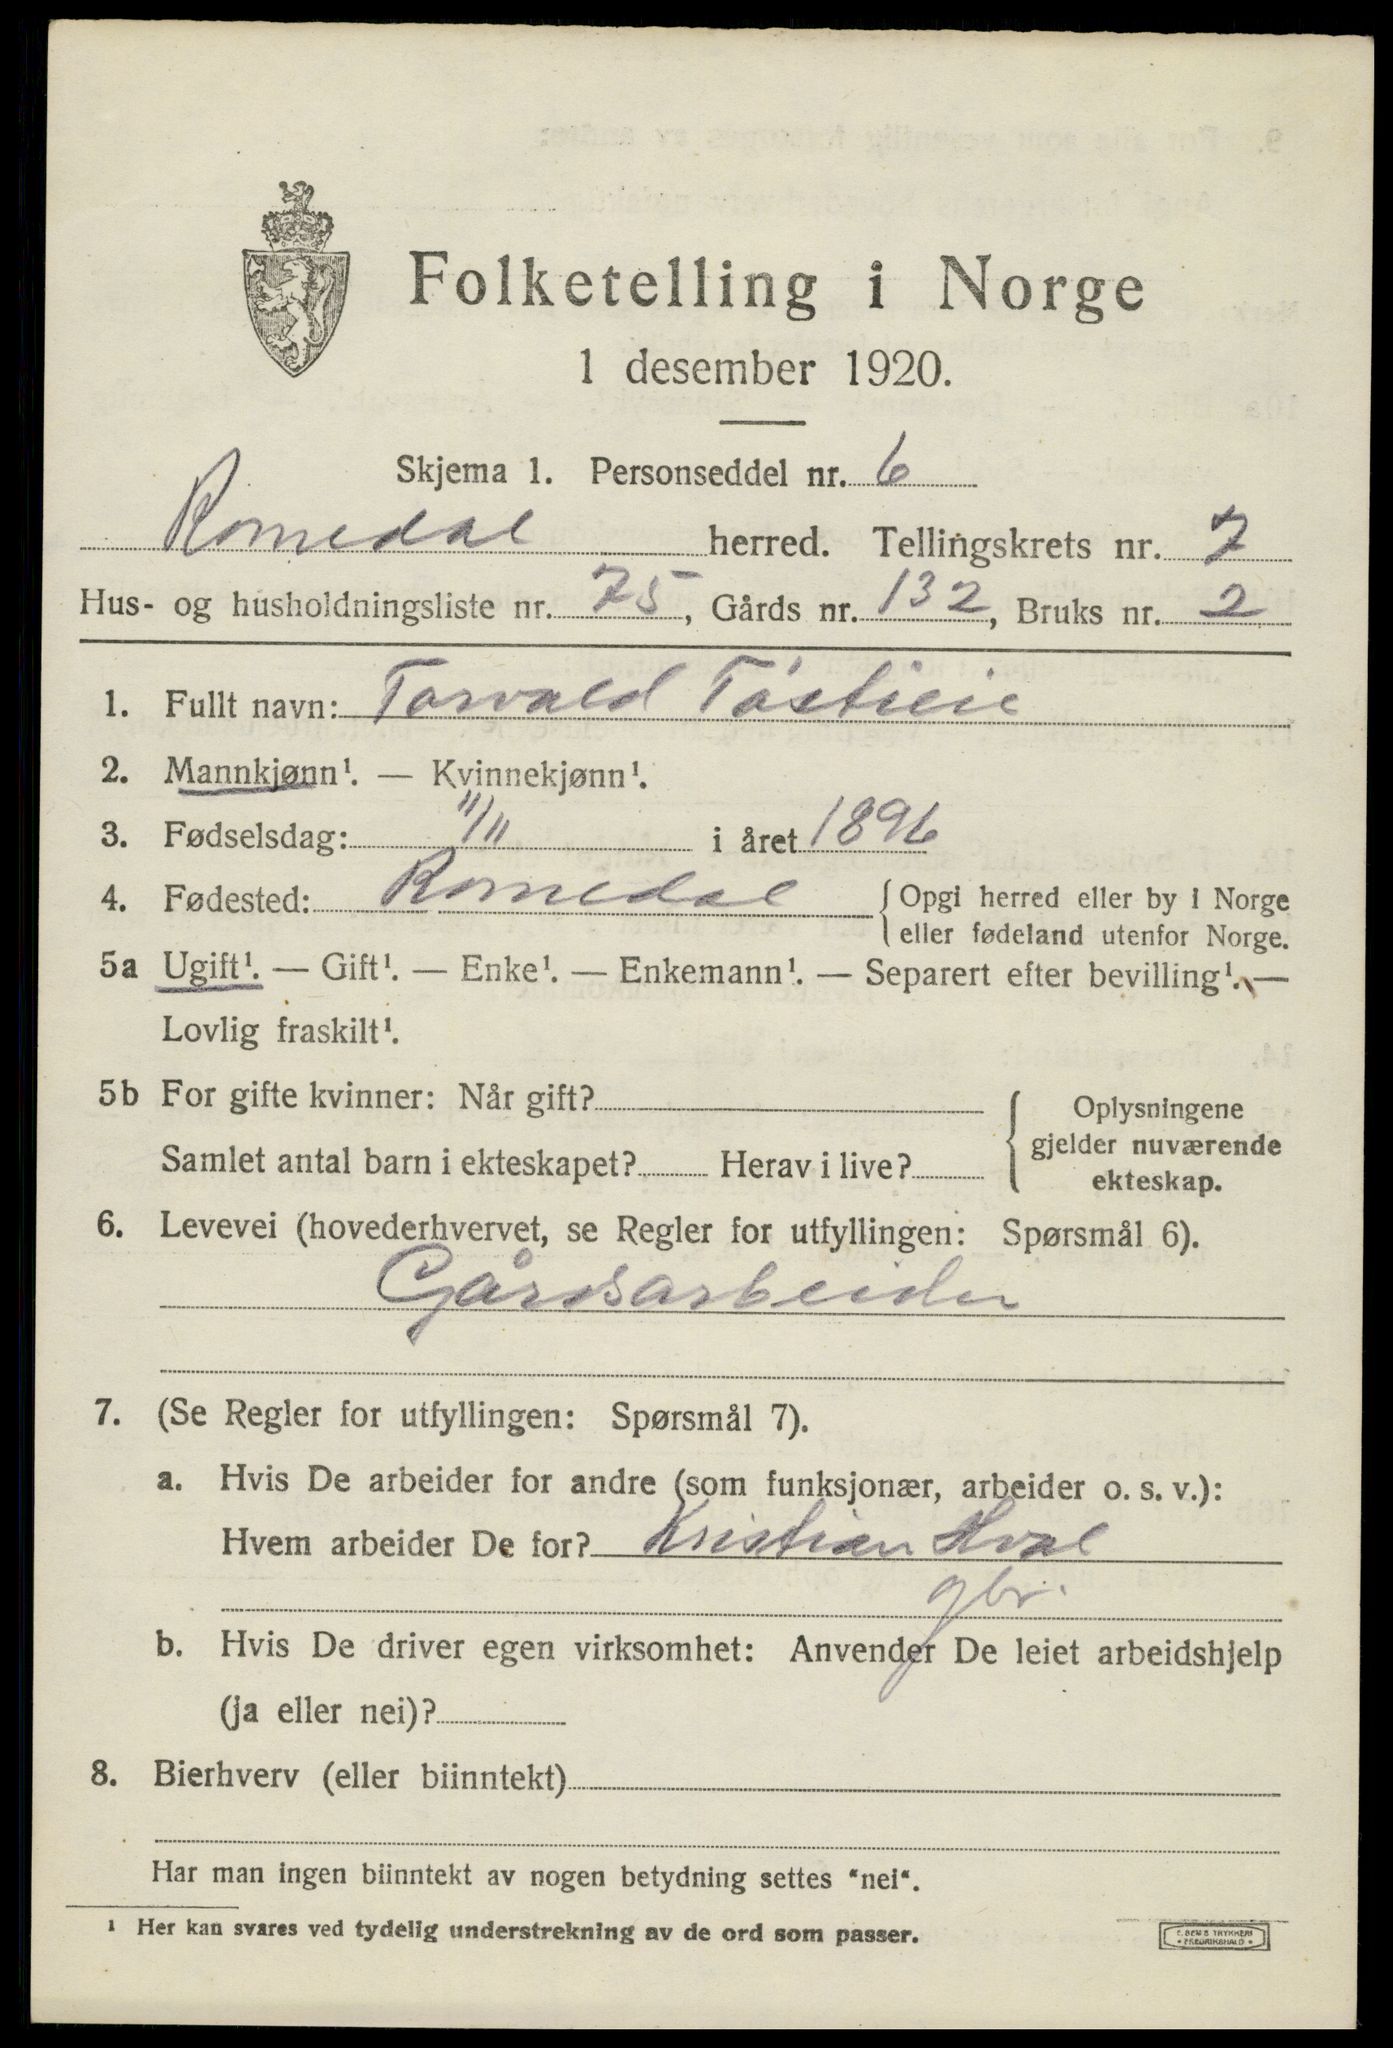 Folketelling i Norge
1 desember 1920.
Skjema 1. Personseddel nr. 6
Romedal herred. Tellingskrets nr. 7
Hus- og husholdningsliste nr. 75, Gårds nr. 132, Bruks nr. 2
1. Fullt navn: Torvald Tóstieie
2. Mannkjønn¹. — Kvinnekjønn¹.
3. Fødselsdag: 11/11 i året 1896
4. Fødested: Romedal {Opgi herred eller by i Norge
eller fødeland utenfor Norge.
5a Ugift¹. — Gift¹. — Enke¹. — Enkemann¹. — Separert efter bevilling¹. —
Lovlig fraskilt¹.
5b For gifte kvinner: Når gift?
Samlet antal barn i ekteskapet? Herav i live?
Oplysningene
gjelder nuværende
ekteskap.
6. Levevei (hovederhvervet, se Regler for utfyllingen: Spørsmål 6).
Gårdsarbeider
7. (Se Regler for utfyllingen: Spørsmål 7).
a. Hvis De arbeider for andre (som funksjonær, arbeider o. s. v.):
Hvem arbeider De for? Kristian Hval
gbr.
b. Hvis De driver egen virksomhet: Anvender De leiet arbeidshjelp
(ja eller nei)?
8. Bierhverv (eller biinntekt)
Har man ingen biinntekt av nogen betydning settes "nei".
¹ Her kan svares ved tydelig understrekning av de ord som passer.
E. SEM'S TRYKKERI
• FREDRIKSHALD •